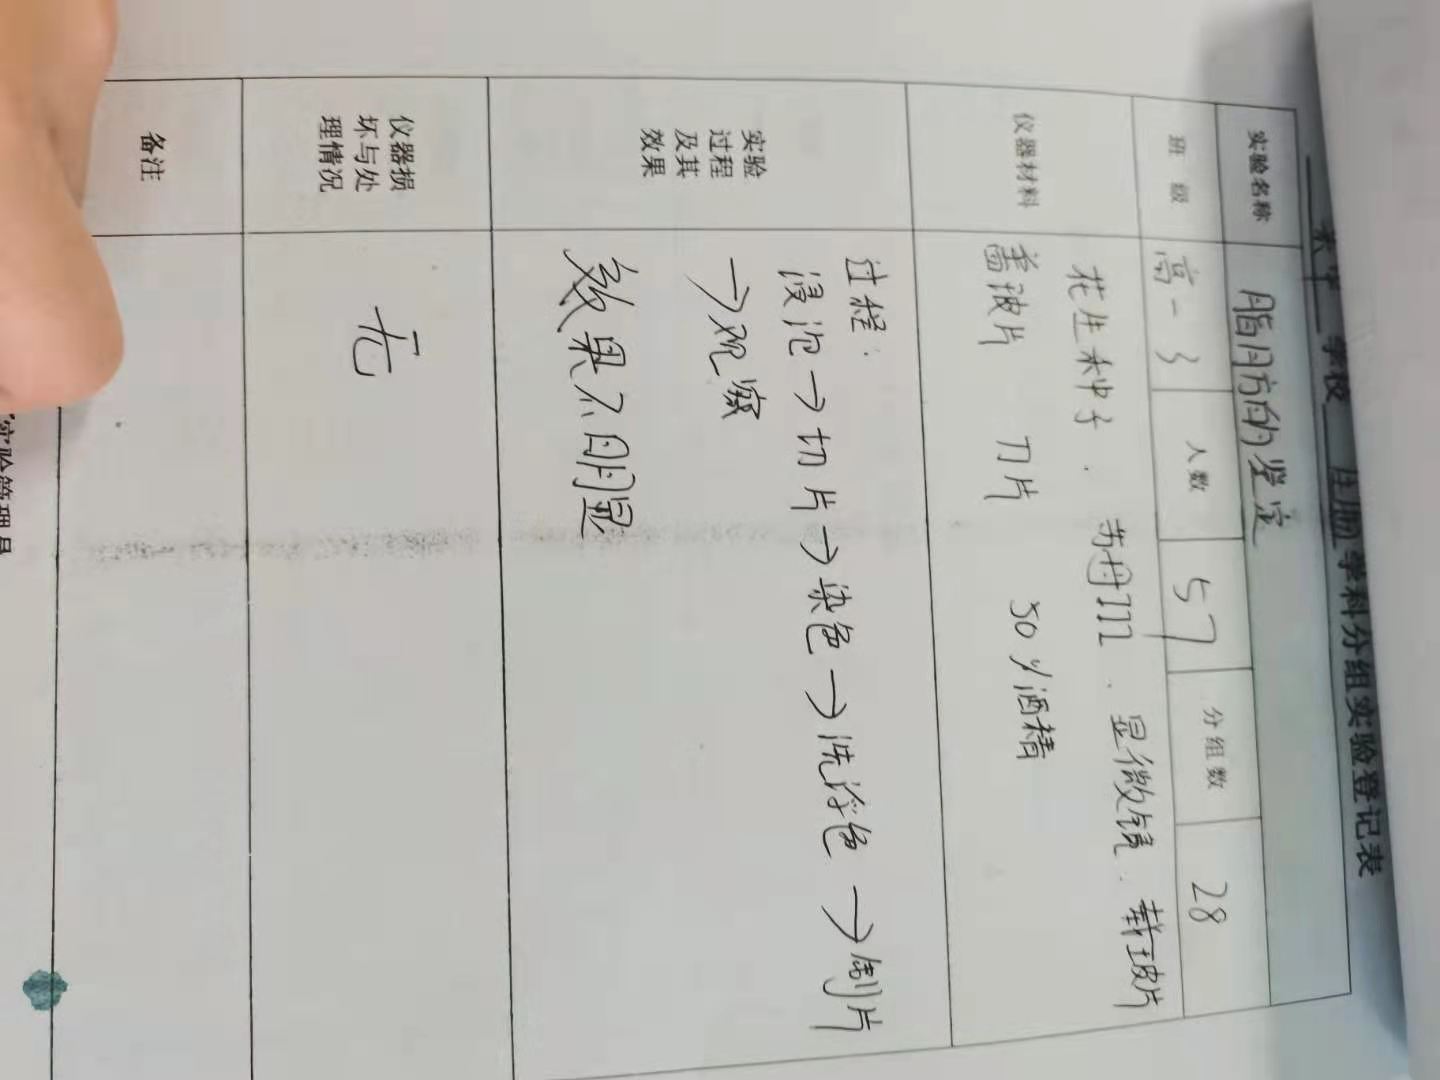 学校 生物 学科分组实验登记表
实验名称 脂肪的鉴定
班级 高一3 人数 57 分组数 28
仪器材料 花生种子.苏丹III.显微镜.载玻片
盖玻片 刀片 50%酒精
实验过程及其效果
过程:
浸泡→切片→染色→洗浮色→制片
→观察
效果不明显
仪器损坏与处理情况 无
备注
实验管理员